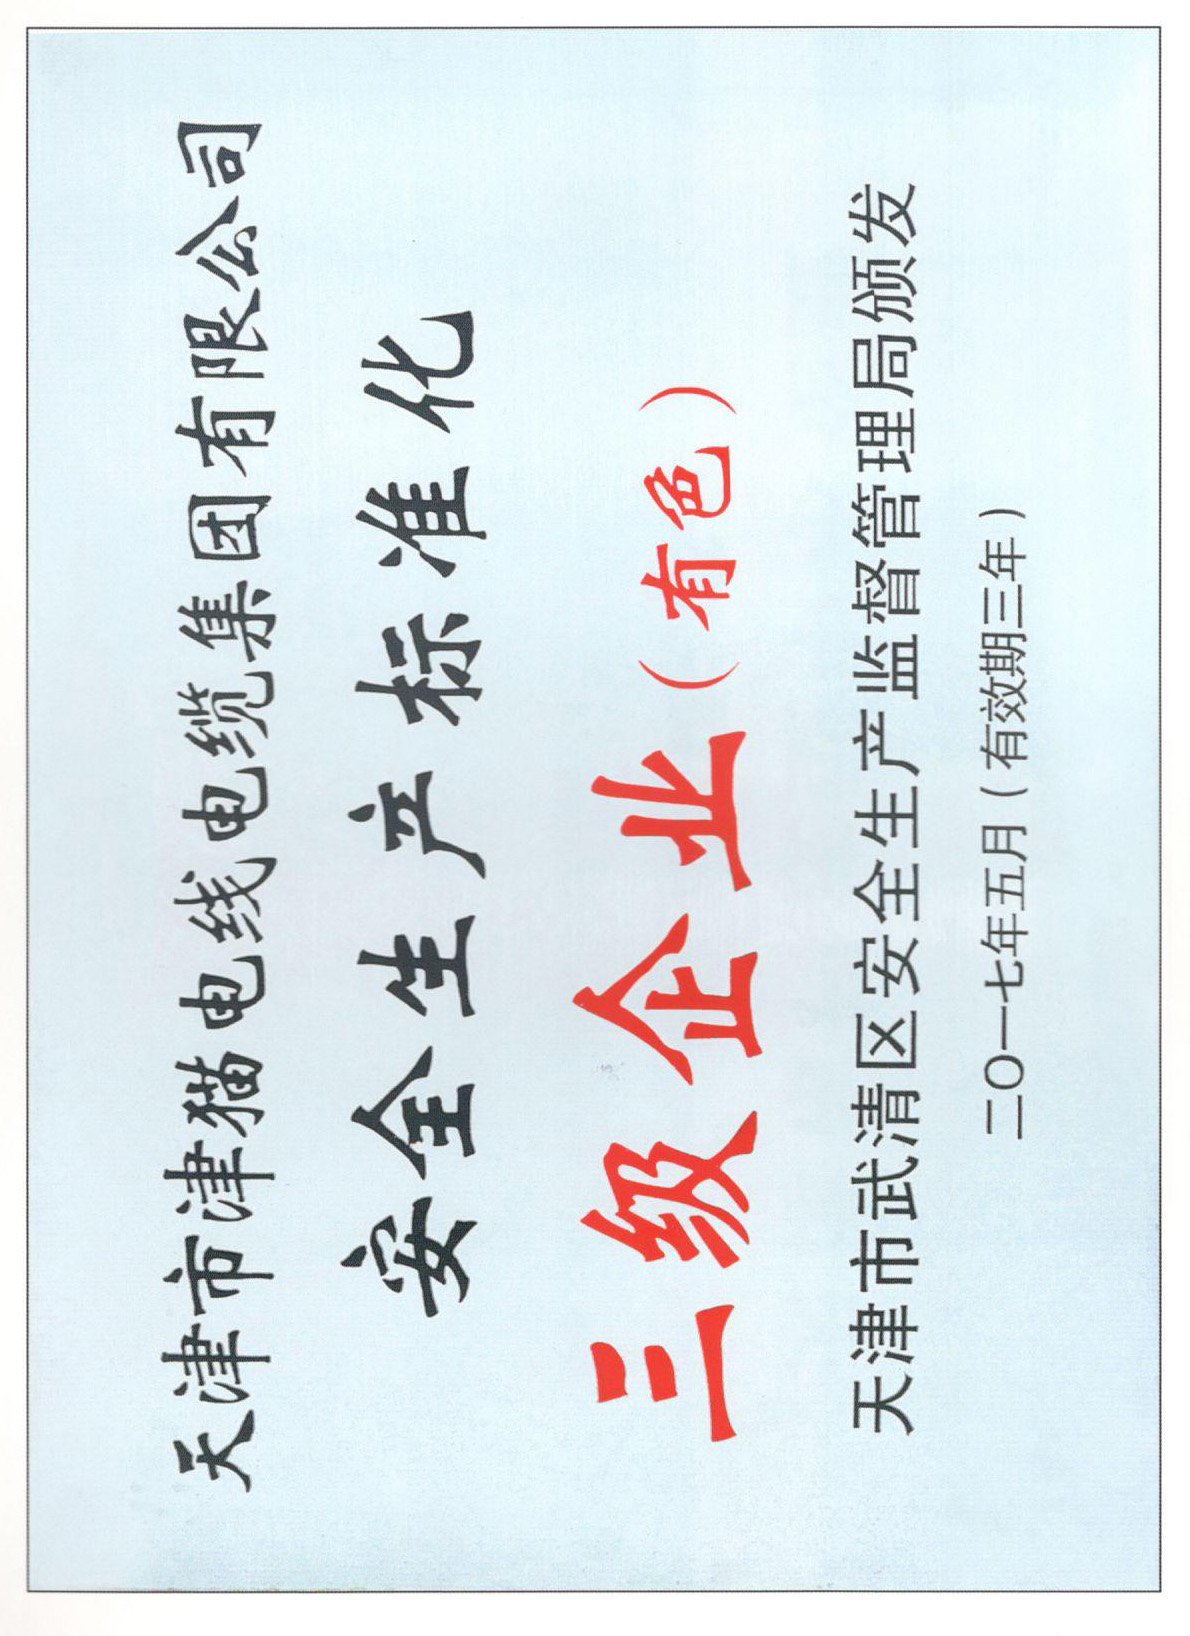 天津市津猫电线电缆集团有限公司
安全生产标准化
三级企业（有色）
天津市武清区安全生产监督管理局颁发
二〇一七年五月（有效期三年）